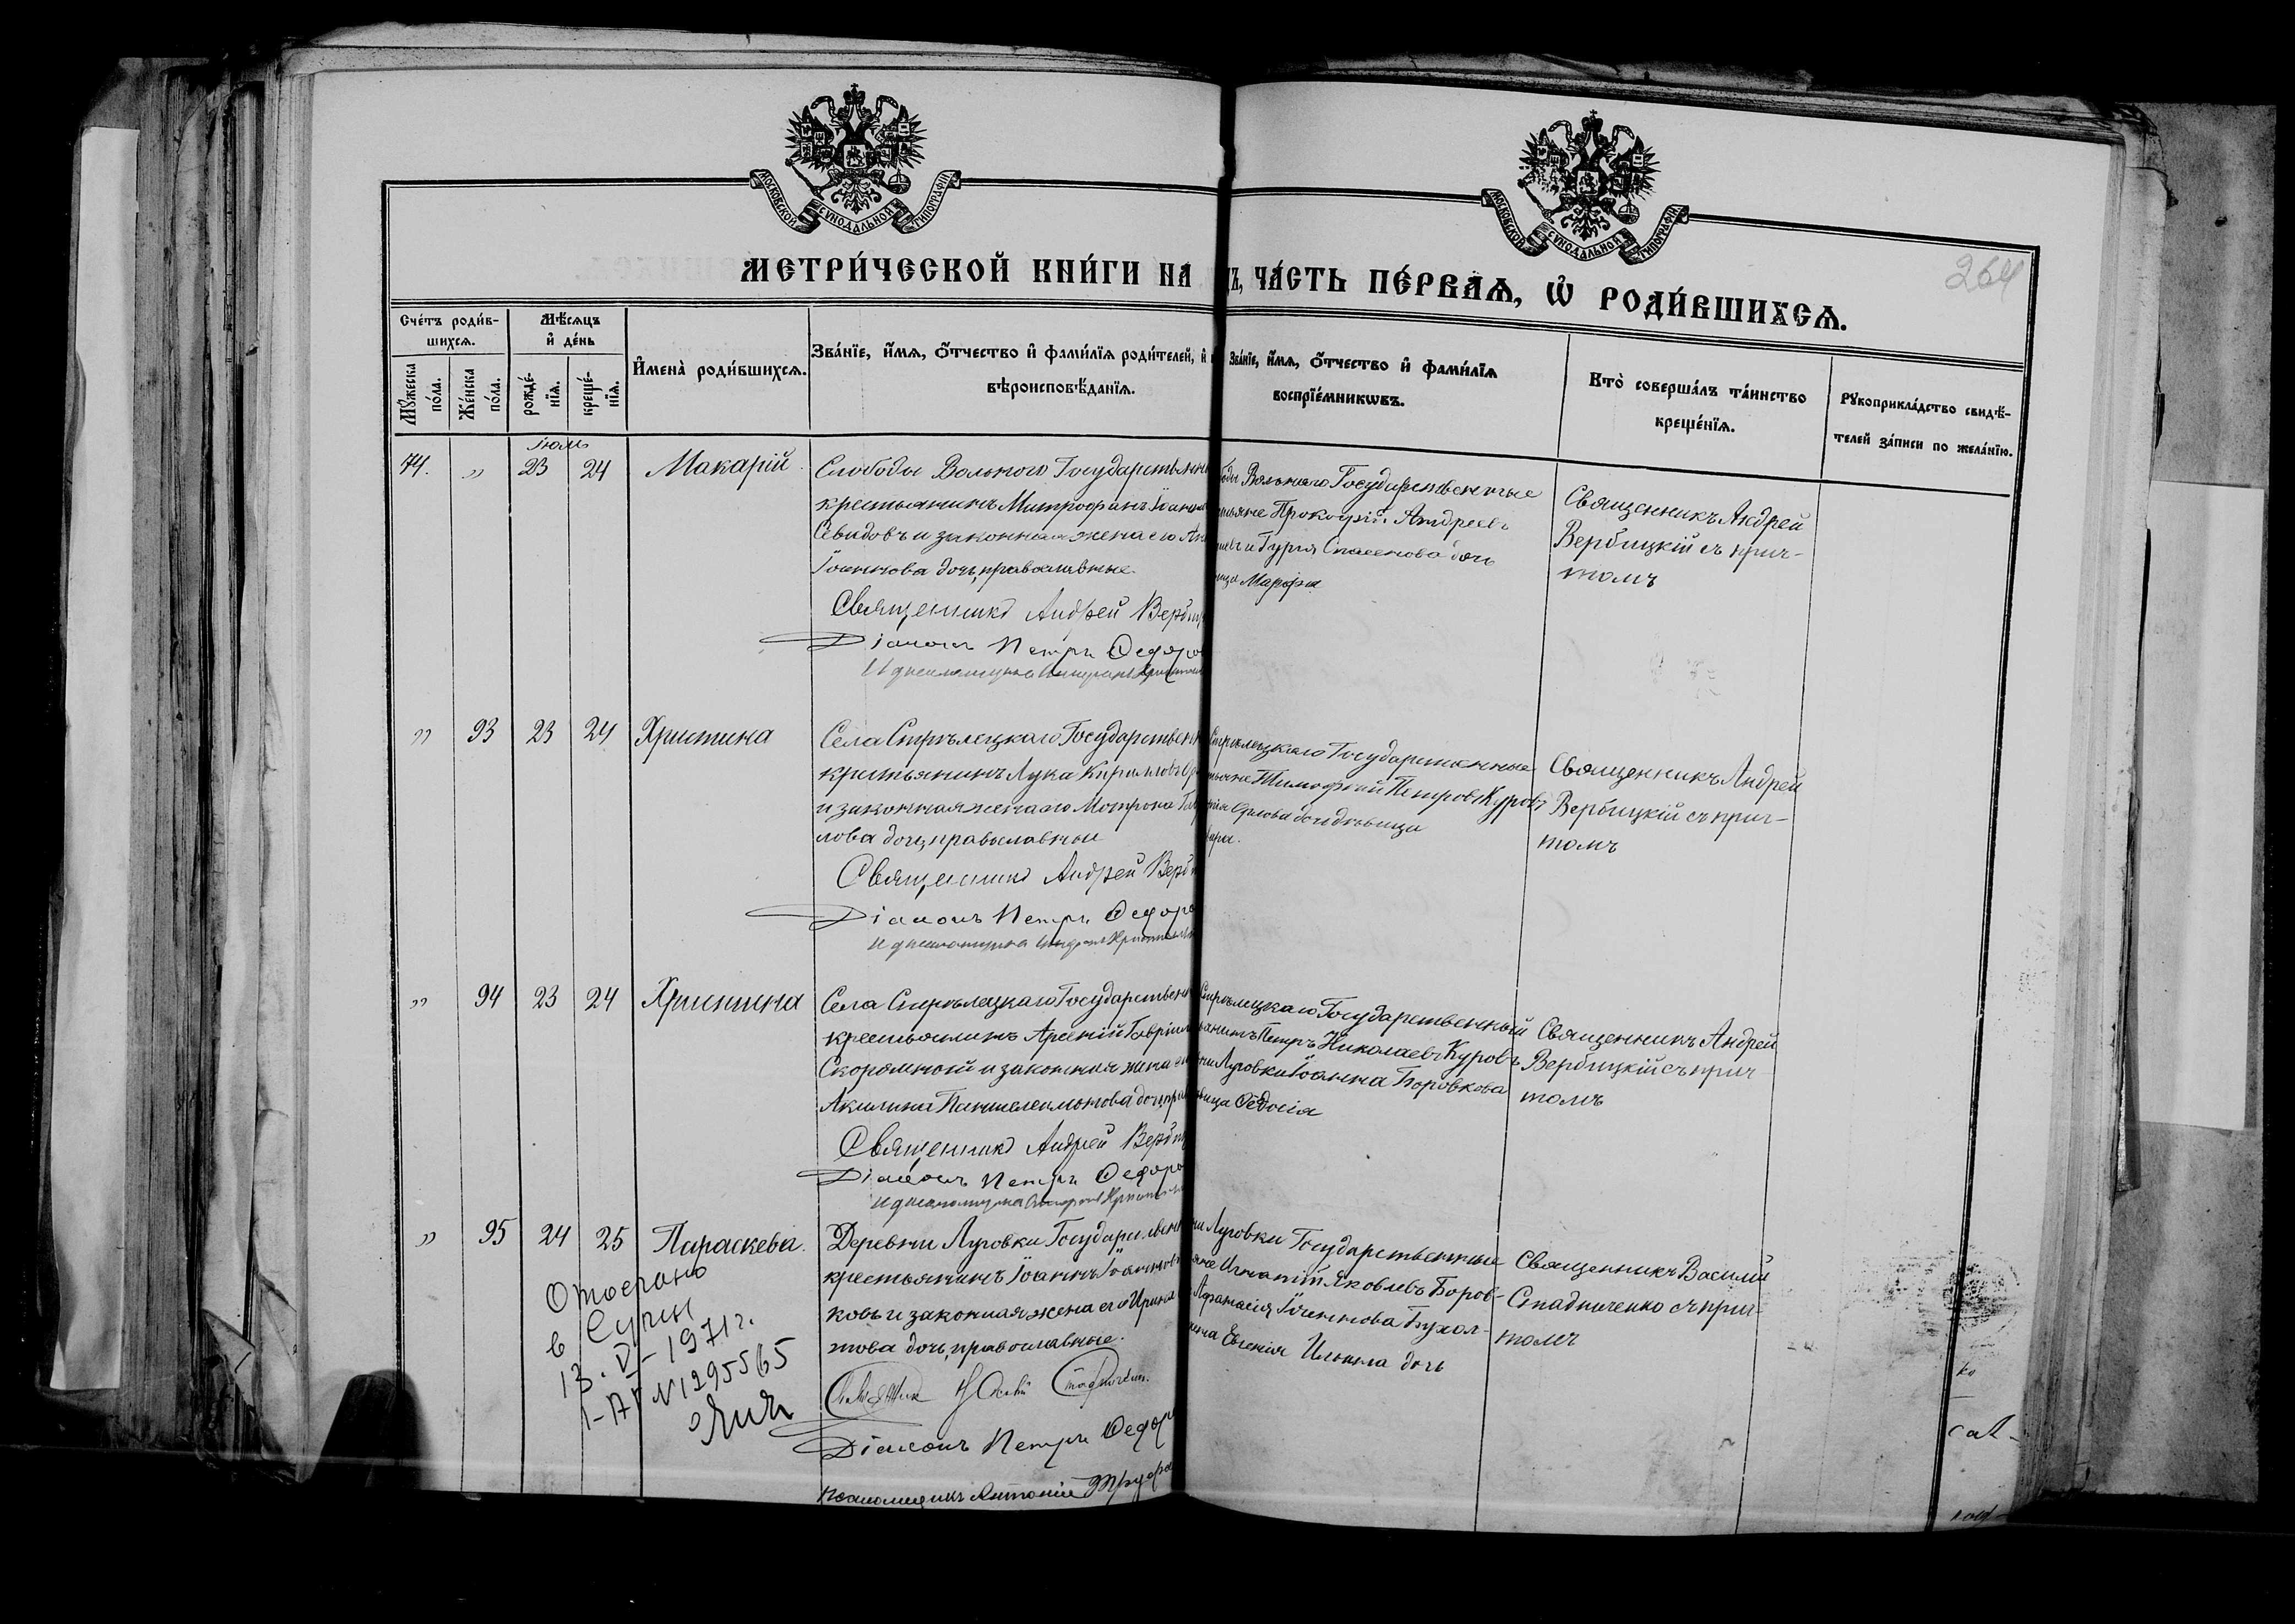 МОСКОВСКОЙ СѴНОДАЛЬНОЙ ТИПОГРАФІИ
МОСКОВСКОЙ СѴНОДАЛЬНОЙ ТИПОГРАФІИ
264
МЕТРИ́ЧЕСКОЙ КНИ́ГИ НА
ЧА́СТЬ ПЕ́РВАѦ, Ѡ҆ РОДИ́ВШИХСѦ.
Сче́тъ роди́в-
шихсѧ.
Мꙋ́жеска
по́ла.
Же́нска
по́ла.
Мѣ́сѧцъ
и҆ де́нь
рожде́-
нїѧ.
креще́-
нїѧ.
И҆мена̀ роди́вшихсѧ.
Зва́нїе, и҆́мѧ, ѻ҆́тчество и҆ фами́лїѧ роди́телей, и҆
вѣроисповѣ́данїѧ.
Зва́нїе, и҆́мѧ, ѻ҆́тчество и҆ фами́лїѧ
воспрїе́мникѡвъ.
Кто̀ соверша́лъ та́инство
креще́нїѧ.
Рꙋкоприкла́дство свидѣ́-
телей за́писи по жела́нїю.
Іюль
74. „ 23 24 Макарій
Слободы Вольного Государственн
крестьянинъ Митрофанъ Іоанно
Севидовъ и законная жена его Ан
Іоаннова дочь, православные.
Священникъ Андрей Верби
Діаконъ Петръ Ѳедоро
боды Вольнаго Государственные
тьяне Прокофій Андреевъ
и Гурія Спасенова дочь
ица Марѳа
Священникъ Андрей
Вербицкій съ прич-
томъ
„ 93 23 24 Христина
Села Стрѣлецкаго Государственн
крестьянинъ Лука Кириловъ Ор
и законная жена его Мотрона Гав
лова дочь, православные
Священникъ Андрей Верби
Діаконъ Петръ Ѳедоро
Стрѣлецкаго Государственные
тьяне Тимофей Петровъ Куровъ
Орлова дочь дѣвица
вара.
Священникъ Андрей
Вербицкій съ прич-
томъ
„ 94 23 24 Христина
Села Стрѣлецкаго Государственн
крестьянинъ Арсеній Гавріил
Скоромной и законная жена его
Акилина Пантелеимонова дочь, пра
Священникъ Андрей Верби
Діаконъ Петръ Ѳедоро
Стрѣлецкаго Государственный
янинъ Петръ Николаевъ Куровъ
ни Луговки Іоанна Боровкова
вица Ѳедосія
Священникъ Андрей
Вербицкій съ прич
томъ
„ 95 24 25 Параскева.
Деревни Луговки Государственн
крестьянинъ Іоаннъ Іоанновъ
ковъ и законная жена его Ирина
това дочь, православные.
Діаконъ Петръ Ѳедоро
Псаломщикъ Антоній Труф
ни Луговки Государственные
яне Игнатій Яковлевъ Боров-
Афанасія Іоаннова Бухол-
жена Евгенія Ильина дочь
Священникъ Василій
Стадниченко съ прич-
томъ
Отослано
в Сумы
13. V - 1971 г.
I-АГ № 1295565